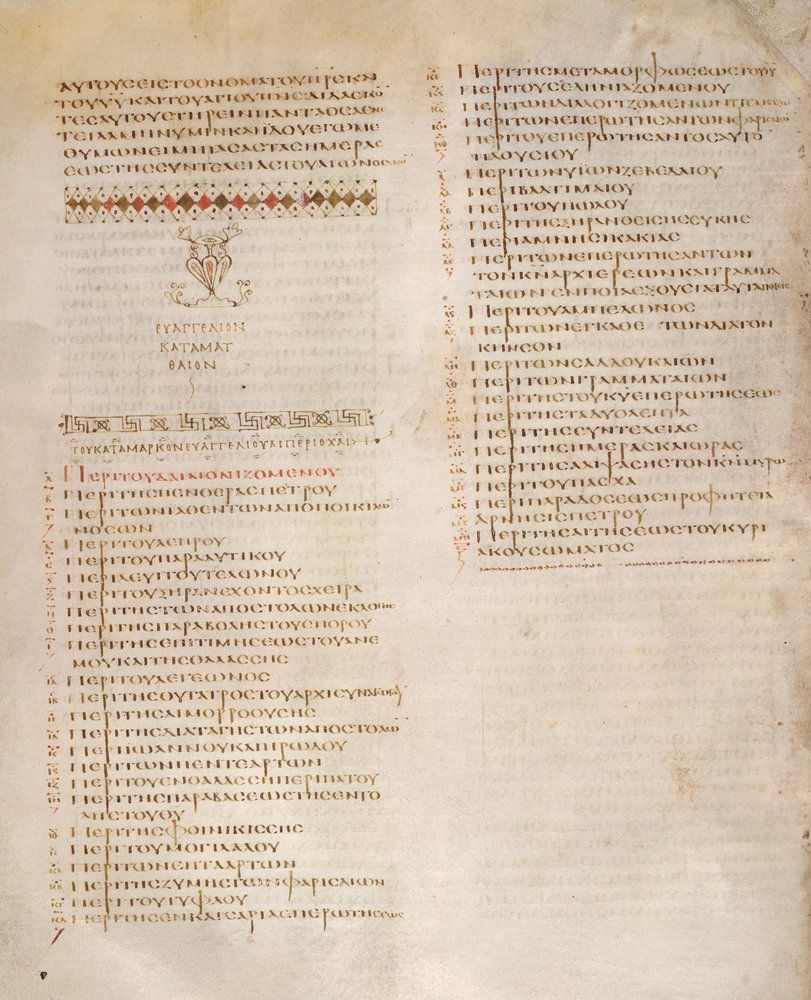 ΑΥΤΟΥϹΕΙϹΤΟΟΝΟΜΑΤΟΥΠΡϹΚΑΙ
ΤΟΥΥΥΚΑΙΤΟΥΑΓΙΟΥΠΝϹΔΙΔΑϹΚΟ
ΤΕϹΑΥΤΟΥϹΤΗΡΕΙΝΠΑΝΤΑΟϹΑΕΝΕ
ΤΕΙΛΑΜΗΝΥΜΙΝΚΑΙΙΔΟΥΕΓΩΜΕ
ΘΥΜΩΝΕΙΜΙΠΑϹΑϹΤΑϹΗΜΕΡΑϹ
ΕΩϹΤΗϹϹΥΝΤΕΛΕΙΑϹΤΟΥΑΙΩΝΟϹ
ΕΥΑΓΓΕΛΙΟΝ
ΚΑΤΑΜΑΤ
ΘΑΙΟΝ
ΤΟΥΚΑΤΑΜΑΡΚΟΝΕΥΑΓΓΕΛΙΟΥΑΙΠΕΡΙΟΧΑΙ
Α ΠΕΡΙΤΟΥΔΑΙΜΟΝΙΖΟΜΕΝΟΥ
Β ΠΕΡΙΤΗϹΠΕΝΘΕΡΑϹΠΕΤΡΟΥ
Γ ΠΕΡΙΤΩΝΙΑΘΕΝΤΩΝΑΠΟΠΟΙΚΙΛΩ
ΝΟϹΩΝ
Δ ΠΕΡΙΤΟΥΛΕΠΡΟΥ
Ε ΠΕΡΙΤΟΥΠΑΡΑΛΥΤΙΚΟΥ
Ϛ ΠΕΡΙΛΕΥΙΤΟΥΤΕΛΩΝΟΥ
Ζ ΠΕΡΙΤΟΥΞΗΡΑΝΕΧΟΝΤΟϹΧΕΙΡΑ
Η ΠΕΡΙΤΗϹΤΩΝΑΠΟϹΤΟΛΩΝΕΚΛΟΓΗϹ
Θ ΠΕΡΙΤΗϹΠΑΡΑΒΟΛΗϹΤΟΥϹΠΟΡΟΥ
Ι ΠΕΡΙΤΗϹΕΠΙΤΙΜΗϹΕΩϹΤΟΥΑΝΕ
ΜΟΥΚΑΙΤΗϹΘΑΛΑϹϹΗϹ
ΙΑ ΠΕΡΙΤΟΥΛΕΓΕΩΝΟϹ
ΙΒ ΠΕΡΙΤΗϹΘΥΓΑΤΡΟϹΤΟΥΑΡΧΙϹΥΝΑΓΩΓΟΥ
ΙΓ ΠΕΡΙΤΗϹΑΙΜΟΡΡΟΟΥϹΗϹ
ΙΔ ΠΕΡΙΤΗϹΔΙΑΤΑΓΗϹΤΩΝΑΠΟϹΤΟΛΩ
ΙΕ ΠΕΡΙΙΩΑΝΝΟΥΚΑΙΗΡΩΔΟΥ
ΙϚ ΠΕΡΙΤΩΝΠΕΝΤΕΑΡΤΩΝ
ΙΖ ΠΕΡΙΤΟΥΕΝΘΑΛΑϹϹΗΠΕΡΙΠΑΤΟΥ
ΙΗ ΠΕΡΙΤΗϹΠΑΡΑΒΑϹΕΩϹΤΗϹΕΝΤΟ
ΛΗϹΤΟΥΘΥ
ΙΘ ΠΕΡΙΤΗϹΦΟΙΝΙΚΙϹϹΗϹ
Κ ΠΕΡΙΤΟΥΜΟΓΙΛΑΛΟΥ
ΚΑ ΠΕΡΙΤΩΝΕΠΤΑΑΡΤΩΝ
ΚΒ ΠΕΡΙΤΗϹΖΥΜΗϹΤΩΝΦΑΡΙϹΑΙΩΝ
ΚΓ ΠΕΡΙΤΟΥΤΥΦΛΟΥ
ΚΔ ΠΕΡΙΤΗϹΕΝΚΑΙϹΑΡΙΑϹΠΕΡΩΤΗϹΕΩϹ
ΚΕ ΠΕΡΙΤΗϹΜΕΤΑΜΟΡΦΩϹΕΩϹΤΟΥΙΥ
ΚϚ ΠΕΡΙΤΟΥϹΕΛΗΝΙΑΖΟΜΕΝΟΥ
ΚΖ ΠΕΡΙΤΩΝΔΙΑΛΟΓΙΖΟΜΕΝΩΝΤΙϹΜΕΙΖΩ
ΚΗ ΠΕΡΙΤΩΝΕΠΕΡΩΤΗϹΑΝΤΩΝΦΑΡΙϹΑΙΩ
ΚΘ ΠΕΡΙΤΟΥΕΠΕΡΩΤΗϹΑΝΤΟϹΑΥΤΟ
ΠΛΟΥϹΙΟΥ
Λ ΠΕΡΙΤΩΝΥΙΩΝΖΕΒΕΔΑΙΟΥ
ΛΑ ΠΕΡΙΒΑΡΤΙΜΑΙΟΥ
ΛΒ ΠΕΡΙΤΟΥΠΩΛΟΥ
ΛΓ ΠΕΡΙΤΗϹΞΗΡΑΝΘΕΙϹΗϹϹΥΚΗϹ
ΛΔ ΠΕΡΙΑΜΝΗϹΙΚΑΚΙΑϹ
ΛΕ ΠΕΡΙΤΩΝΕΠΕΡΩΤΗϹΑΝΤΩΝ
ΤΟΝΚΝΑΡΧΙΕΡΕΩΝΚΑΙΓΡΑΜΜΑ
ΤΑΙΩΝΕΝΠΟΙΑΕΞΟΥϹΙΑΤΑΥΤΑΠΟΙΕΙϹ
ΛϚ ΠΕΡΙΤΟΥΑΜΠΕΛΩΝΟϹ
ΛΖ ΠΕΡΙΤΩΝΕΓΚΑΘΕΤΩΝΔΙΑΤΟΝ
ΚΗΝϹΟΝ
ΛΗ ΠΕΡΙΤΩΝϹΑΔΔΟΥΚΑΙΩΝ
ΛΘ ΠΕΡΙΤΩΝΓΡΑΜΜΑΤΑΙΩΝ
Μ ΠΕΡΙΤΗϹΤΟΥΚΥΕΠΕΡΩΤΗϹΕΩϹ
ΜΑ ΠΕΡΙΤΗϹΤΑΔΥΟΛΕΠΤΑ
ΜΒ ΠΕΡΙΤΗϹϹΥΝΤΕΛΕΙΑϹ
ΜΓ ΠΕΡΙΤΗϹΗΜΕΡΑϹΚΑΙΩΡΑϹ
ΜΔ ΠΕΡΙΤΗϹΑΛΙΨΑϹΗϹΤΟΝΚΝΜΥΡΩ
ΜΕ ΠΕΡΙΤΟΥΠΑϹΧΑ
ΜϚ ΠΕΡΙΠΑΡΑΔΟϹΕΩϹΠΡΟΦΗΤΕΙΑ
ΜΖ ΑΡΝΗϹΙϹΠΕΤΡΟΥ
ΜΗ ΠΕΡΙΤΗϹΑΙΤΗϹΕΩϹΤΟΥΚΥΡΙ
ΑΚΟΥϹΩΜΑΤΟϹ